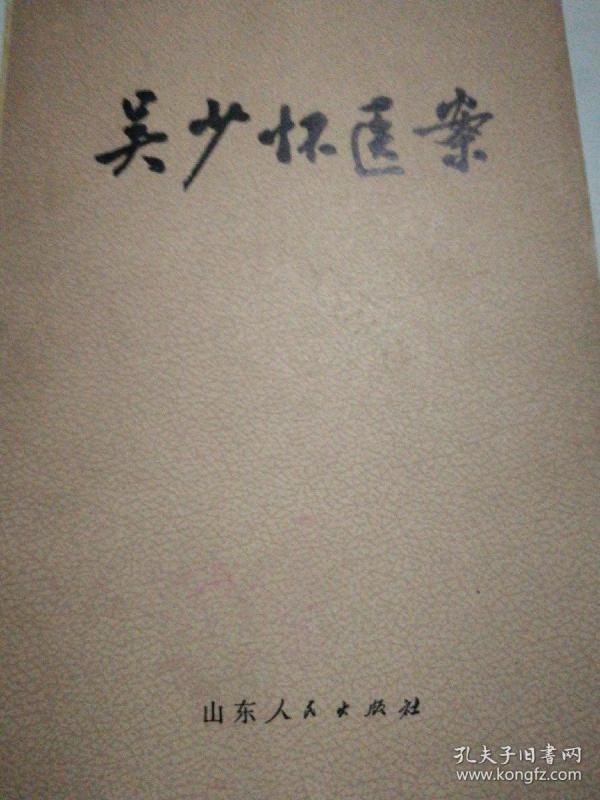 吴少怀医案
山东人民出版社
孔夫子旧书网
www.kongfz.com